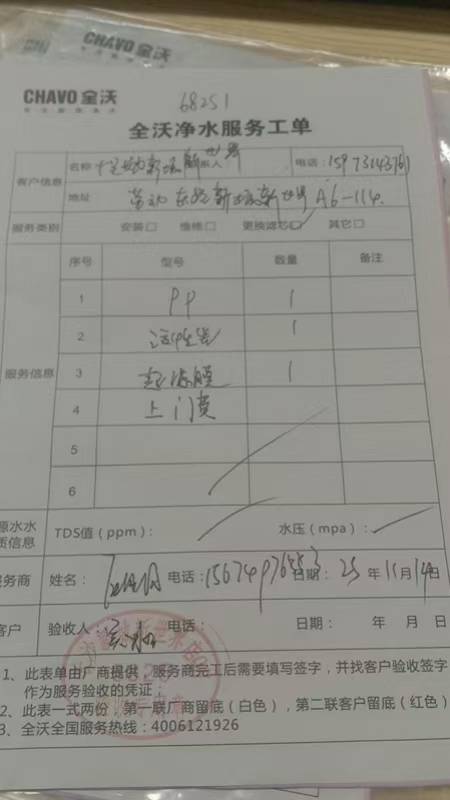 CHAVO 全沃
CHAVO 全沃
68251
全沃净水服务工单
客户信息 名称 联系人 电话：15973143761
地址 劳动东路新城新世界 A6-114
服务类别 安装□ 维修□ 更换滤芯□ 其它□
服务信息
序号 型号 数量 备注
1 PP 1
2 活性炭 1
3 超滤膜 1
4 上门费
5
6
源水水质信息 TDS值（ppm）： 水压（mpa）：
服务商 姓名： 电话：15674976553 日期：25 年 11 月 14 日
客户 验收人： 电话： 日期： 年 月 日
1、此表单由厂商提供，服务商完工后需要填写签字，并找客户验收签字
作为服务验收的凭证；
2、此表一式两份，第一联厂商留底（白色），第二联客户留底（红色）
3、全沃全国服务热线：4006121926